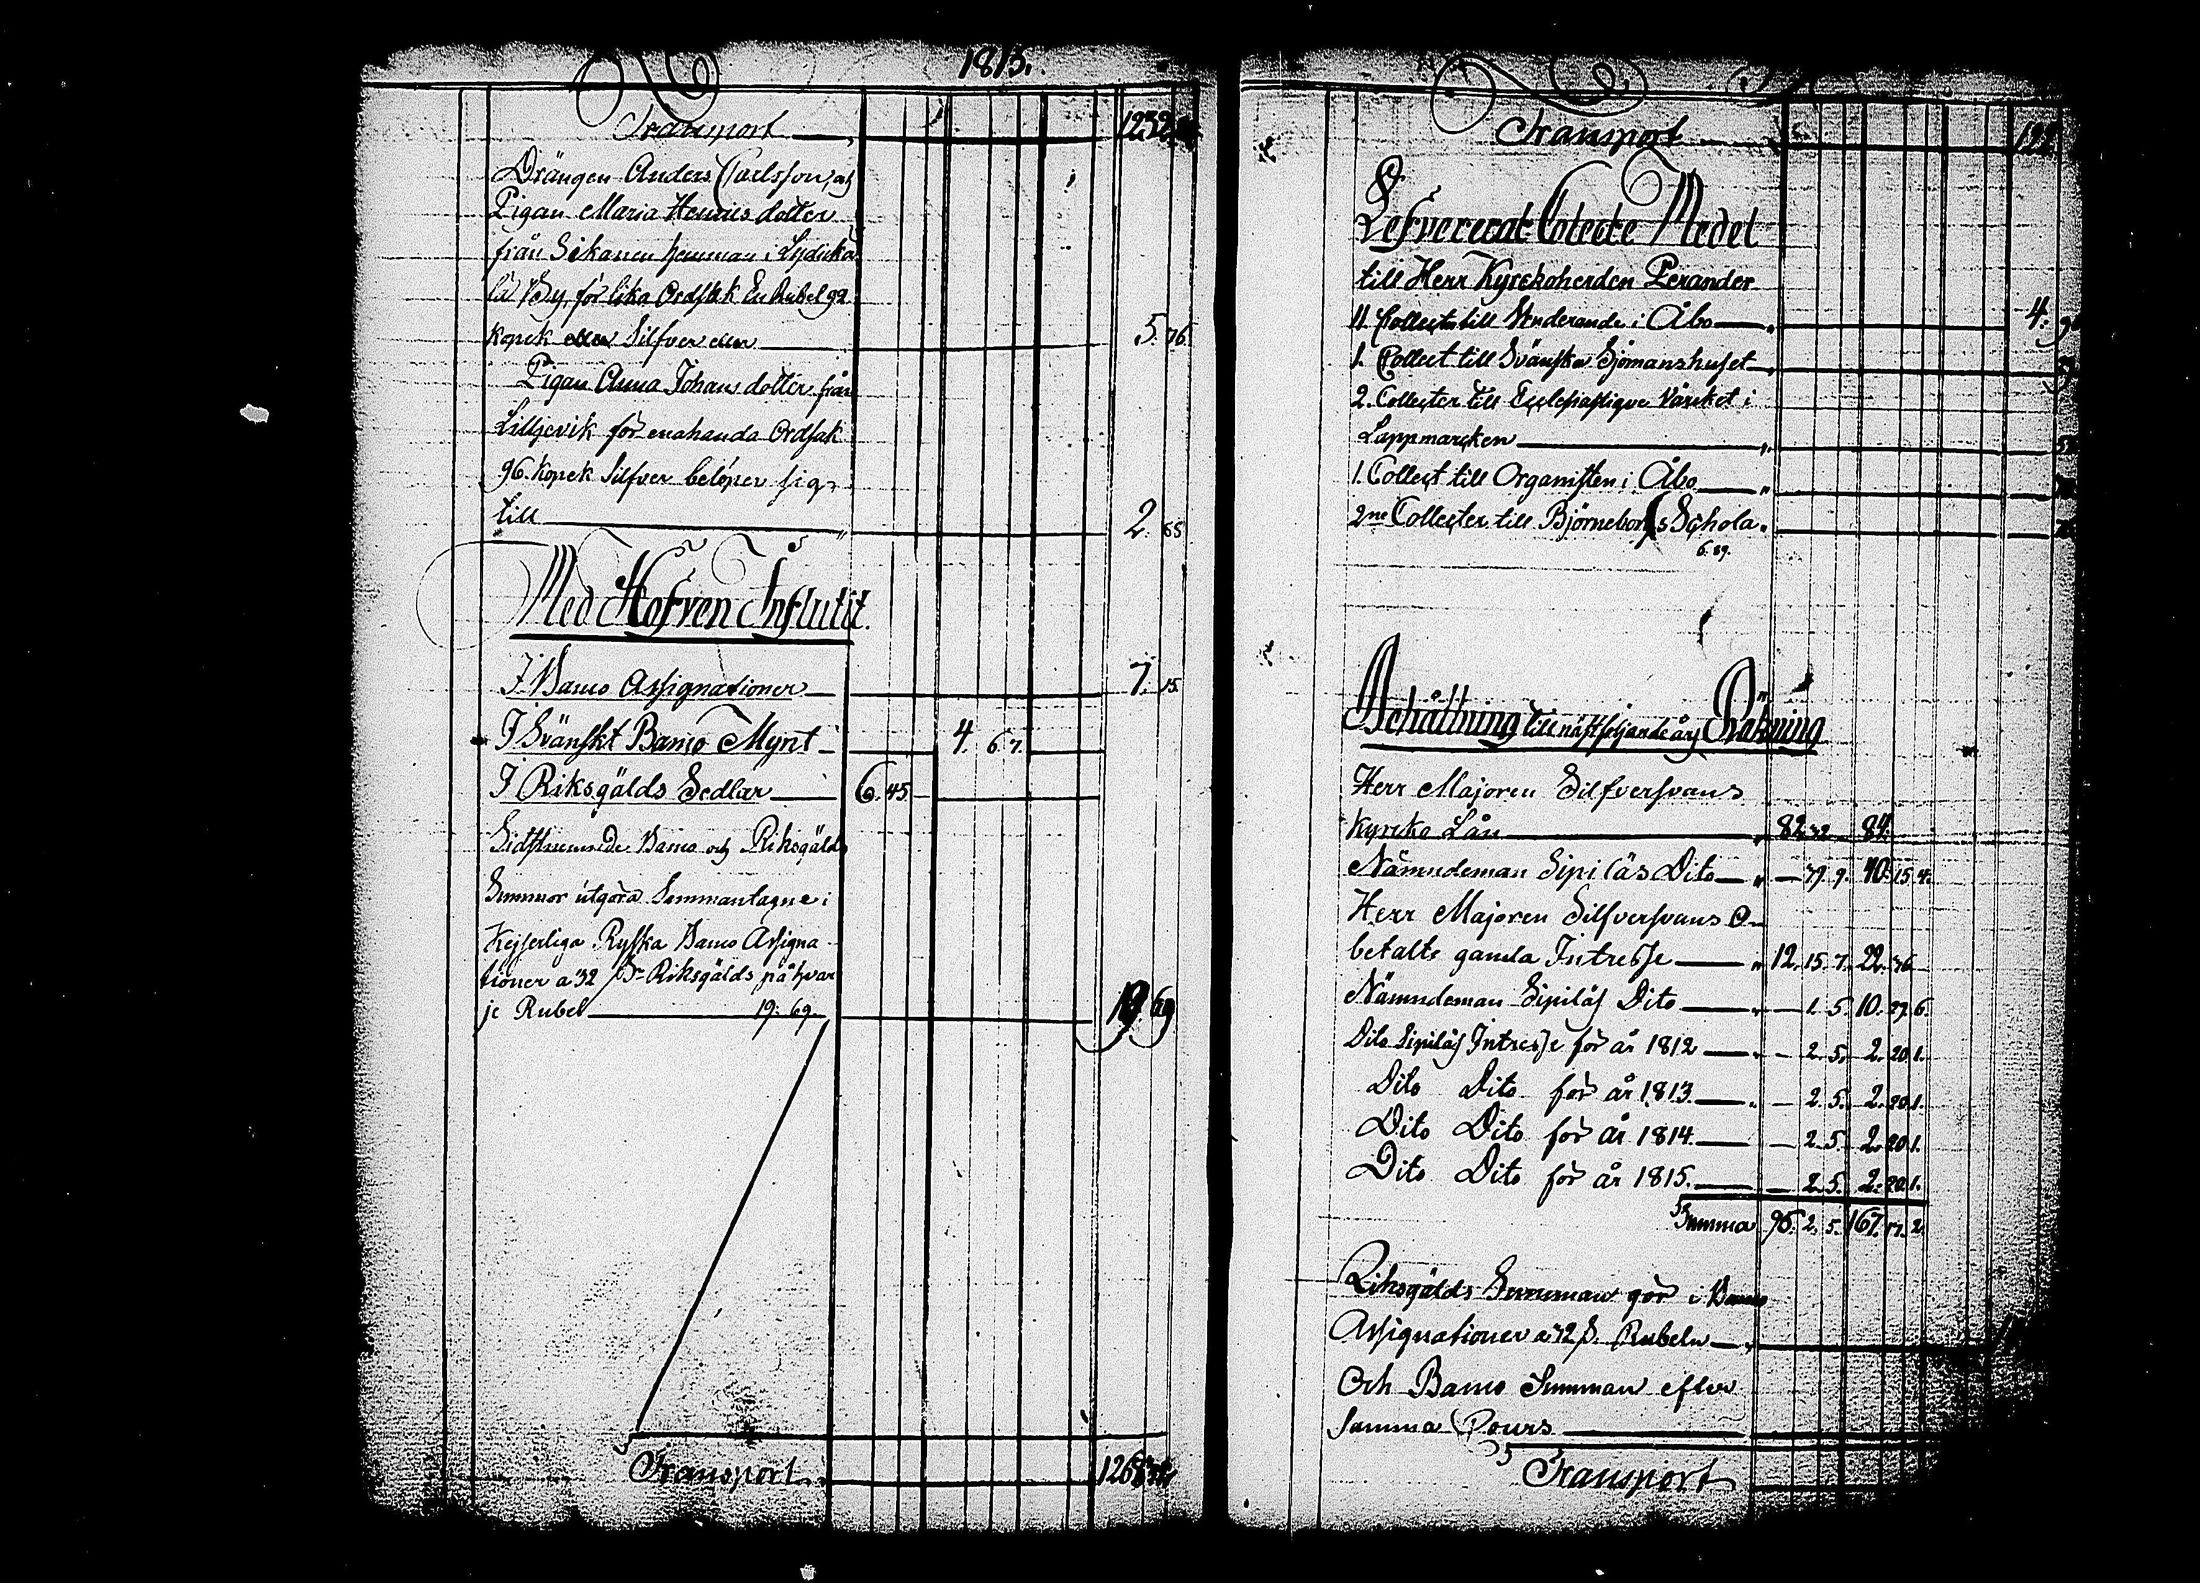 1815.
Transport 1232.
Drängen Anders Carlsson, och
Pigan Maria Henrics dotter
från Sikanen hemman i Lydicka
lä By för lika Ordsak En Rubel 92
kopek eller Silfver eller 5. 76.
Pigan Anna Johans dotter från
Lillgevik för enahanda Ordsak
96. kopek Silfver belöper sig
till 2. 88
Med Håfven Influtit.
I Banco Assignationer 7. 15.
I Svänskt Banco Mynt 4. 6. 7.
I Riksgälds Sedlar 6. 45.
Sidstnemnde Banco och Riksgälds
Summor utgöra Sammantagne i
Kejserliga Ryska Banco Assigna
tioner a 32 s. Riksgälds på hvar
je Rubel 19. 69. 19. 69
Transport 1268.
Transport 122
Lefvererat Colecte Medel
till Herr Kyrckoherden Perander
11. Collecter till Studerande i Åbo 4.
1. Collect till Svänska Sjömanshuset
2. Collecter till Ecclesiastique Värcket i
Lappmarcken
1. Collect till Organisten i Åbo
2ne Collecter till Björneborgs Schola
6. 89.
Behållning till nästföljande års Räkning
Herr Majoren Silfversvans
Kyrcko Lån 82. 32. 84.
Nämndeman Sipiläs Dito 79. 9. 40. 15. 4.
Herr Majoren Silfversvans O
betalte gamla Intresse 12. 15. 7. 22. 36
Nämndeman Sipiläs Dito 1. 5. 10. 27. 6.
Dito Sipiläs Intresse för år 1812 2. 5. 2. 20. 1.
Dito Dito för år 1813. 2. 5. 2. 20. 1.
Dito Dito för år 1814. 2. 5. 2. 20. 1.
Dito Dito för år 1815. 2. 5. 2. 20. 1.
Summa 96. 2. 5. 167. 17. 2.
Riksgälds Summan gör i Banco
Assignationer a 32 s. Rubeln
Och Banco Summan efter
samma Cours
Transport